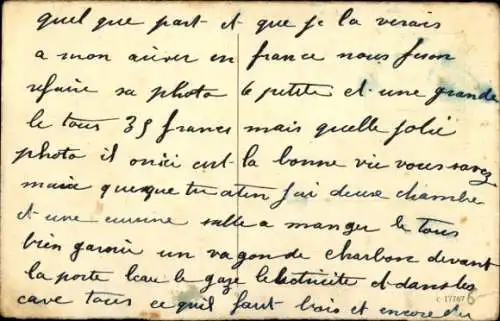 quel que part et que je la verais
a mon airver en france nous feron
refaire sa photo 6 petite et une grande
le tous 35 francs mais quelle jolie
photo il on ici cest la bonne vie vous savez
marie quesque tu aten jai deux chambre
et une cuisine salle a manger le tous
bien garnie un vagon de charbon devant
la porte leau le gaze lectricite et dans les
cave tous ce quil faut bois et encore du
C 17767
6